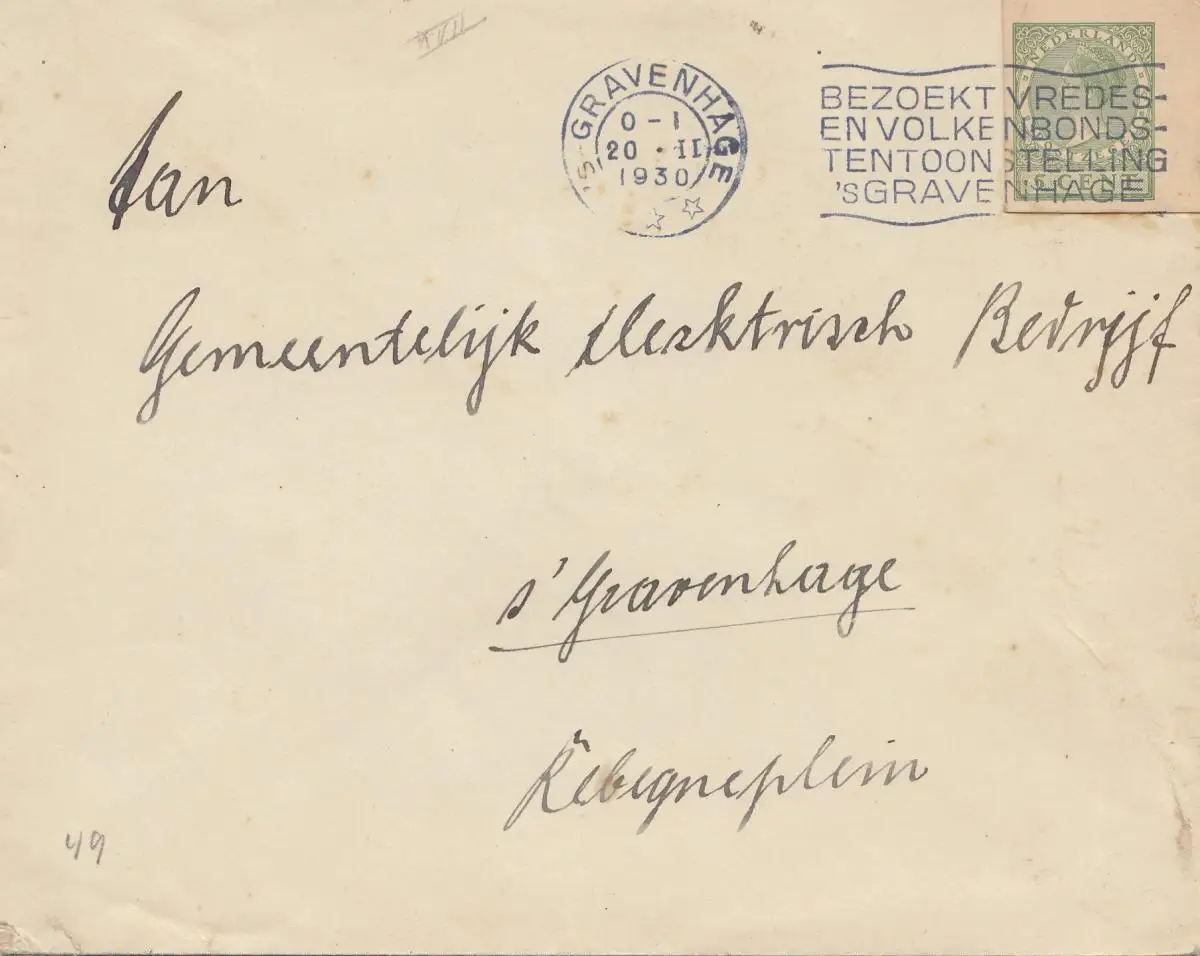 XVII
'S-GRAVENHAGE
0-1
20 · II
1930
BEZOEKT VREDES-
EN VOLKENBONDS-
TENTOONSTELLING
'SGRAVENHAGE
NEDERLAND
5 CENT
Aan
Gemeentelijk Elecktrisch Bedrijf
s'Gravenhage
Rebequeplein
49